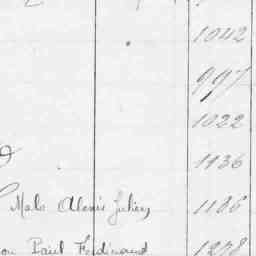 1042
997
1022
1136
Malo Alexis Julien 1186
on Paul Ferdinand 1278